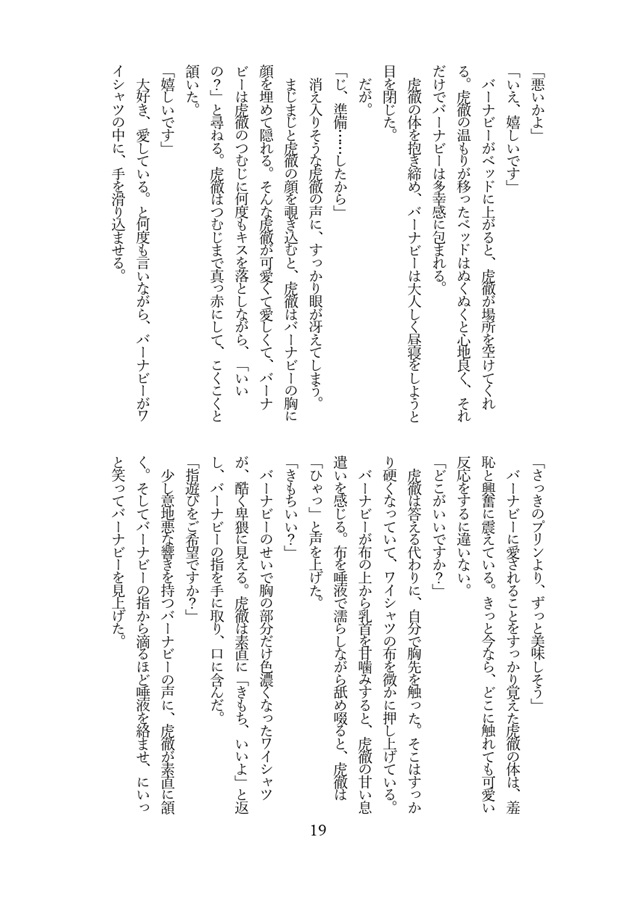 「悪いかよ」
「いえ、嬉しいです」
　バーナビーがベッドに上がると、虎徹が場所を空けてくれ
る。虎徹の温もりが移ったベッドはぬくぬくと心地良く、それ
だけでバーナビーは多幸感に包まれる。
　虎徹の体を抱き締め、バーナビーは大人しく昼寝をしようと
目を閉じた。
　だが。
「じ、準備……したから」
　消え入りそうな虎徹の声に、すっかり眼が冴えてしまう。
　まじまじと虎徹の顔を覗き込むと、虎徹はバーナビーの胸に
顔を埋めて隠れる。そんな虎徹が可愛くて愛しくて、バーナ
ビーは虎徹のつむじに何度もキスを落としながら、「いい
の？」と尋ねる。虎徹はつむじまで真っ赤にして、こくこくと
頷いた。
「嬉しいです」
　大好き、愛している。と何度も言いながら、バーナビーがワ
イシャツの中に、手を滑り込ませる。
「さっきのプリンより、ずっと美味しそう」
　バーナビーに愛されることをすっかり覚えた虎徹の体は、羞
恥と興奮に震えている。きっと今なら、どこに触れても可愛い
反応をするに違いない。
「どこがいいですか？」
　虎徹は答える代わりに、自分で胸先を触った。そこはすっか
り硬くなっていて、ワイシャツの布を微かに押し上げている。
　バーナビーが布の上から乳首を甘噛みすると、虎徹の甘い息
遣いを感じる。布を唾液で濡らしながら舐め啜ると、虎徹は
「ひゃっ」と声を上げた。
「きもちいい？」
　バーナビーのせいで胸の部分だけ色濃くなったワイシャツ
が、酷く卑猥に見える。虎徹は素直に「きもち、いいよ」と返
し、バーナビーの指を手に取り、口に含んだ。
「指遊びをご希望ですか？」
　少し意地悪な響きを持つバーナビーの声に、虎徹が素直に頷
く。そしてバーナビーの指から滴るほど唾液を絡ませ、にいっ
と笑ってバーナビーを見上げた。
19